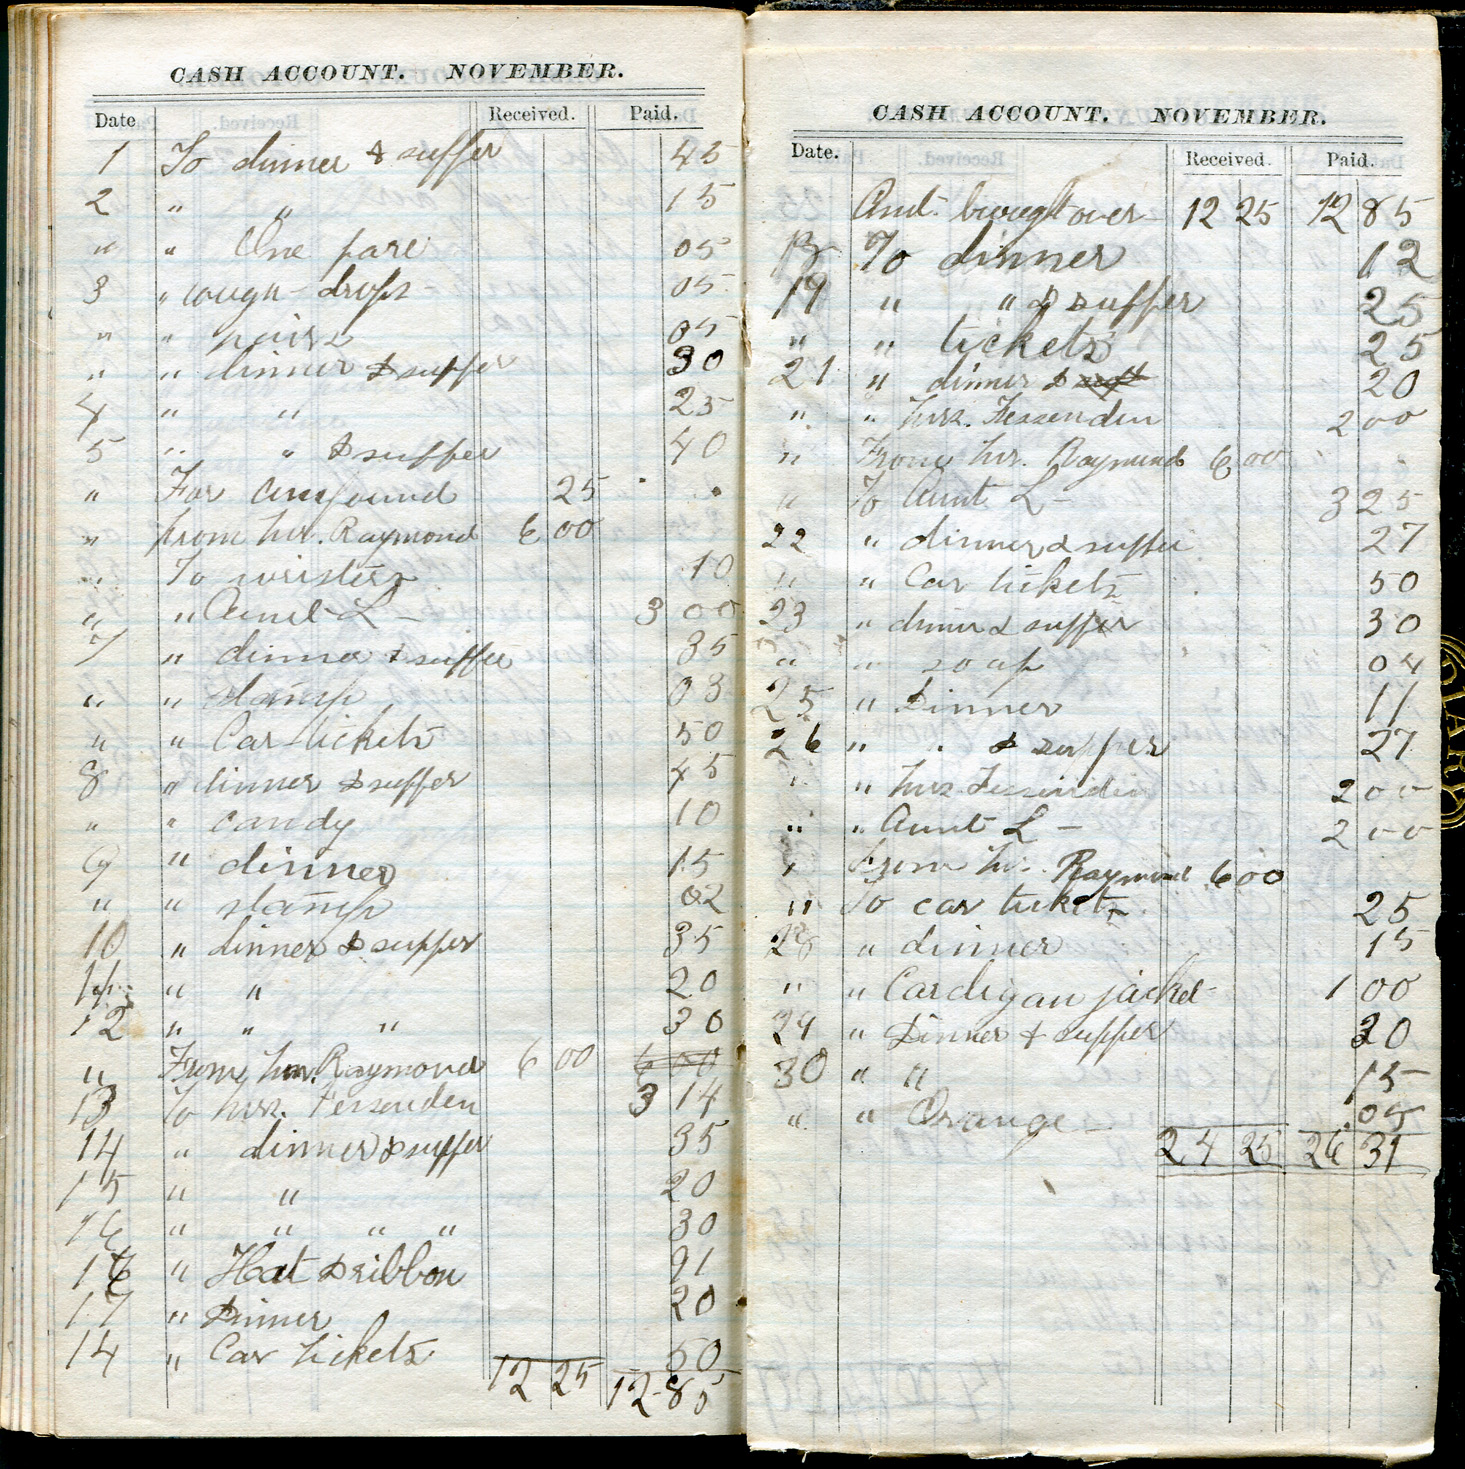 CASH ACCOUNT. NOVEMBER.
Date Received. Paid.
1 To dinner & supper 45
2 " " 15
" " One fare 05
3 " cough drops 05
" " 05
" " dinner & supper 30
4 " " 25
5 " " & supper 40
" For 25
" from Mr. Raymond 6 00
" To wristers 10
" " Aunt L — 3 00
7 " dinner & supper 35
" " stamp 03
" " Car tickets 50
8 " dinner & supper 45
" " candy 10
9 " dinner 15
" " stamp 02
10 " dinner & supper 35
11 " " 20
12 " " " 30
" From Mr. Raymond 6 00 6 00
13 To Mrs. Fessenden 3 14
14 " dinner & supper 35
15 " " 20
16 " " " " 30
16 " Hat & ribbon 91
17 " Dinner 20
14 " Car tickets 50
12 25 12-85
CASH ACCOUNT. NOVEMBER.
Date. Received. Paid.
Amt. brought over 12 25 12 85
To dinner 12
19 " " & supper 25
" " tickets 25
21 " dinner & 20
" " Mrs. Fessenden 2 00
" From Mr. Raymond 6 00
" To Aunt L — 3 25
22 " dinner & supper 27
" " Car tickets 50
23 " dinner & supper 30
" " soap 04
25 " Dinner 11
26 " " & supper 27
" " Mrs Fessenden 2 00
" " Aunt L — 2 00
" From Mr. Raymond 6 00
" To car tickets 25
28 " dinner 15
" " Cardigan jacket 1 00
29 " Dinner & supper 30
30 " " 15
" " Orange — 05
24 25 26 31
DIARY